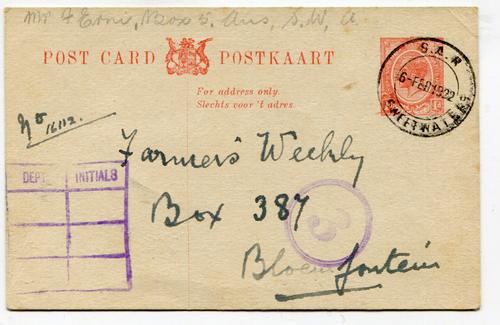 Mr F Erni, Box 5. Aus, S.W.A.
POST CARD POSTKAART
For address only.
Slechts voor 't adres.
S.A.R
6-FEB 1922
16112.
DEPT. INITIALS
Farmer's Weekly
Box 387
Bloemfontein
3